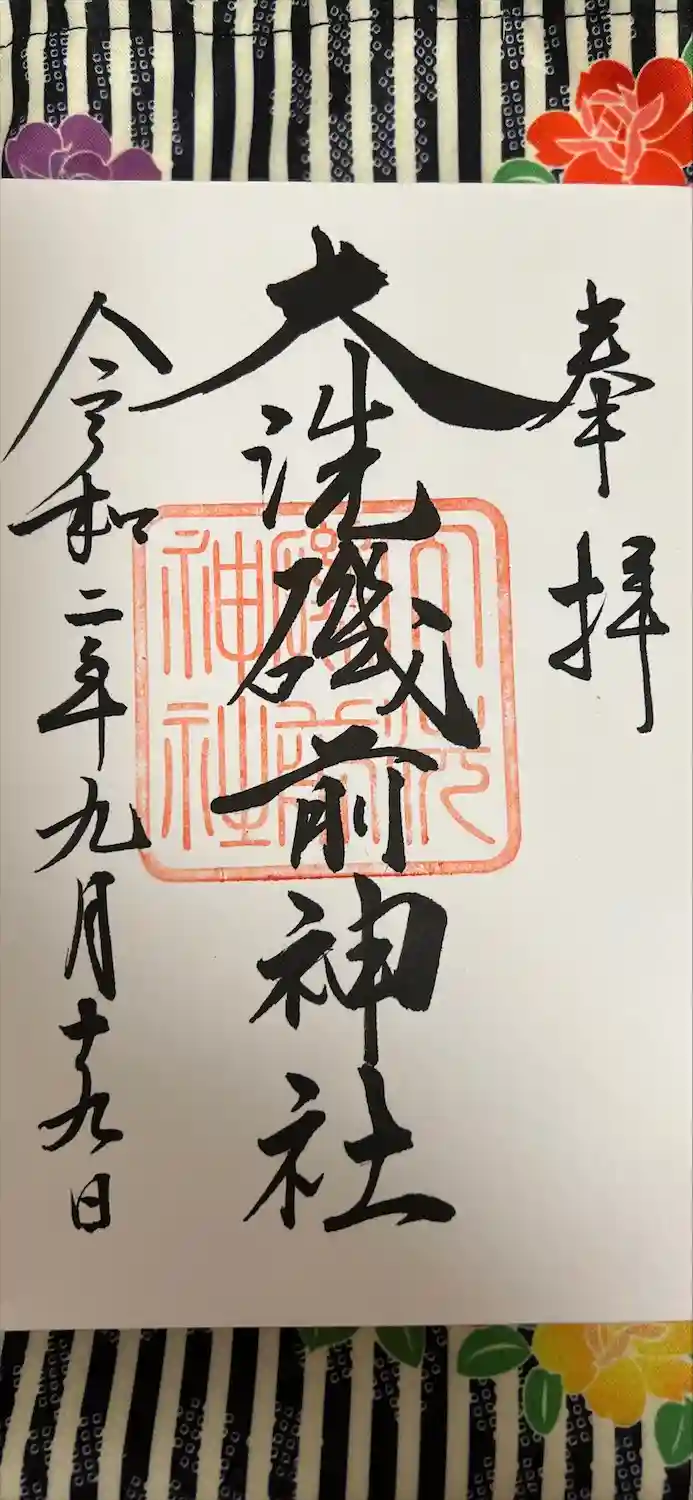 奉拝
大洗磯前神社
大洗
磯前
神社
令和二年九月十九日